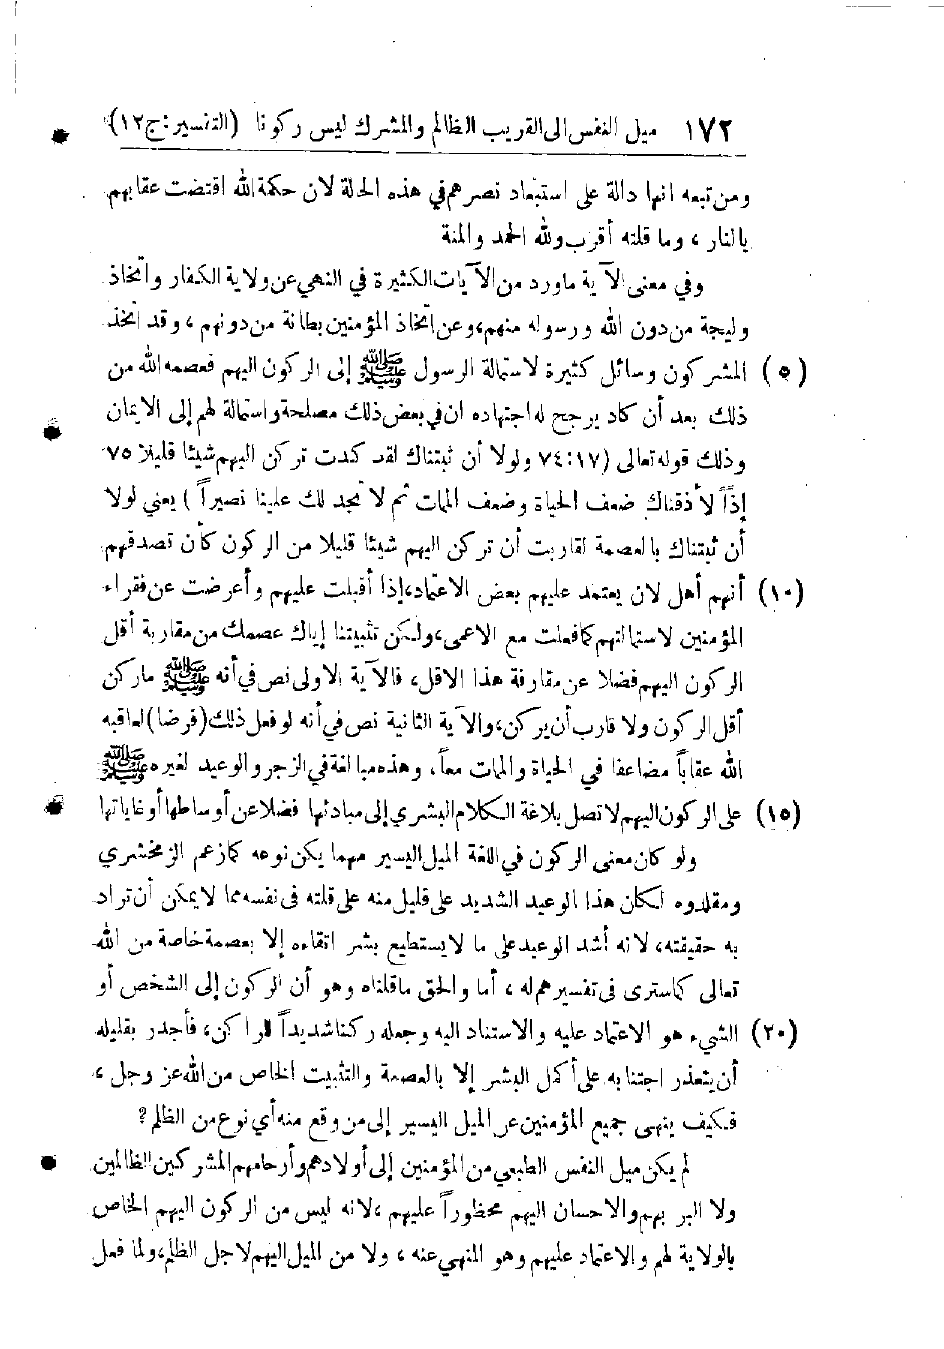 ١٧٢ ميل النفس الى القريب الظالم والمشرك ليس ركونا (التفسير: ج١٢)
ومن تبعه انها دالة على استبعاد نصرهم في هذه الحالة لان حكمة الله اقتضت عقابهم
بالنار ، وما قلته أقرب ولله الحمد والمنة
وفي معنى الآية ماورد من الآيات الكثيرة في النهي عن ولاية الكفار واتخاذ
وليجة من دون الله ورسوله منهم، وعن اتخاذ المؤمنين بطانة من دونهم ، وقد اتخذ
(٥) المشركون وسائل كثيرة لاستمالة الرسول ﷺ إلى الركون اليهم فعصمه الله من
ذلك بعد أن كاد يرجح له اجتهاده ان في بعض ذلك مصلحة واستمالة لهم إلى الايمان
وذلك قوله تعالى (٧٤:١٧ ولولا أن ثبتناك لقد كدت تركن اليهم شيئا قليلا ٧٥
إذاً لأذقناك ضعف الحياة وضعف الممات ثم لا تجد لك علينا نصيراً ) يعني لولا
أن ثبتناك بالعصمة لقاربت أن تركن اليهم شيئا قليلا من الركون كأن تصدقهم
(١٠) أنهم أهل لان يعتمد عليهم بعض الاعتماد، إذا أقبلت عليهم وأعرضت عن فقراء
المؤمنين لاستمالتهم كما فعلت مع الاعمى، ولكن تثبيتنا إياك عصمك من مقاربة أقل
الركون اليهم فضلا عن مقارفة هذا الاقل، فالآية الاولى نص في أنه ﷺ ماركن
أقل الركون ولا قارب أن يركن، والآية الثانية نص في أنه لو فعل ذلك (فرضا) لعاقبه
الله عقاباً مضاعفا في الحياة والممات معاً ، وهذه مبالغة في الزجر والوعيد لغيره ﷺ
(١٥) على الركون اليهم لا تصل بلاغة الكلام البشري إلى مبادئها فضلا عن أوساطها أو غاياتها
ولو كان معنى الركون في اللغة الميل اليسير مهما يكن نوعه كما زعم الزمخشري
ومقلدوه لكان هذا الوعيد الشديد على قليل منه على قلته في نفسه مما لا يمكن أن تراد
به حقيقته، لانه أشد الوعيد على ما لا يستطيع بشر اتقاءه إلا بعصمة خاصة من الله
تعالى كما سترى في تفسيرهم له ، أما والحق ما قلناه وهو أن الركون إلى الشخص أو
(٢٠) الشيء هو الاعتماد عليه والاستناد اليه وجعله ركنا شديداً للراكن، فأجدر بقليله
أن يتعذر اجتنابه على أكمل البشر إلا بالعصمة والتثبيت الخاص من الله عز وجل ،
فكيف ينهى جميع المؤمنين عن الميل اليسير إلى من وقع منه أي نوع من الظلم ؟
لم يكن ميل النفس الطبعي من المؤمنين إلى أولادهم وأرحامهم المشركين الظالمين
ولا البر بهم والاحسان اليهم محظوراً عليهم ، لانه ليس من الركون اليهم الخاص
بالولاية لهم والاعتماد عليهم وهو المنهي عنه ، ولا من الميل اليهم لاجل الظلم، ولما فعل